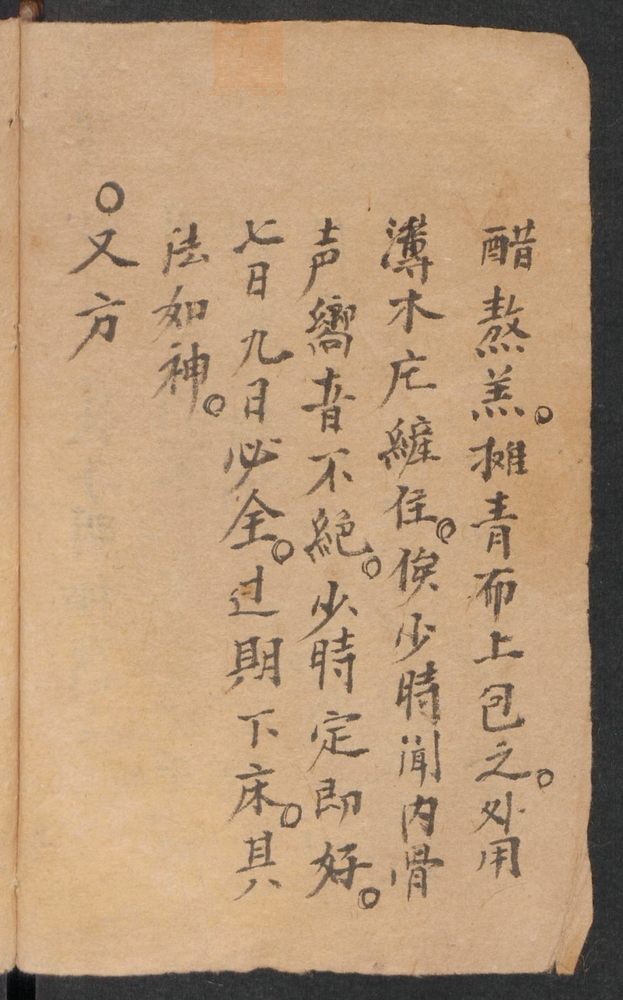 醋熬羔。摊青布上包之。外用
薄木庀纏住。俟少時闻内骨
声嚮音不絕。少時定即好。
七日九日必全。过期下床。其
法如神。
○又方